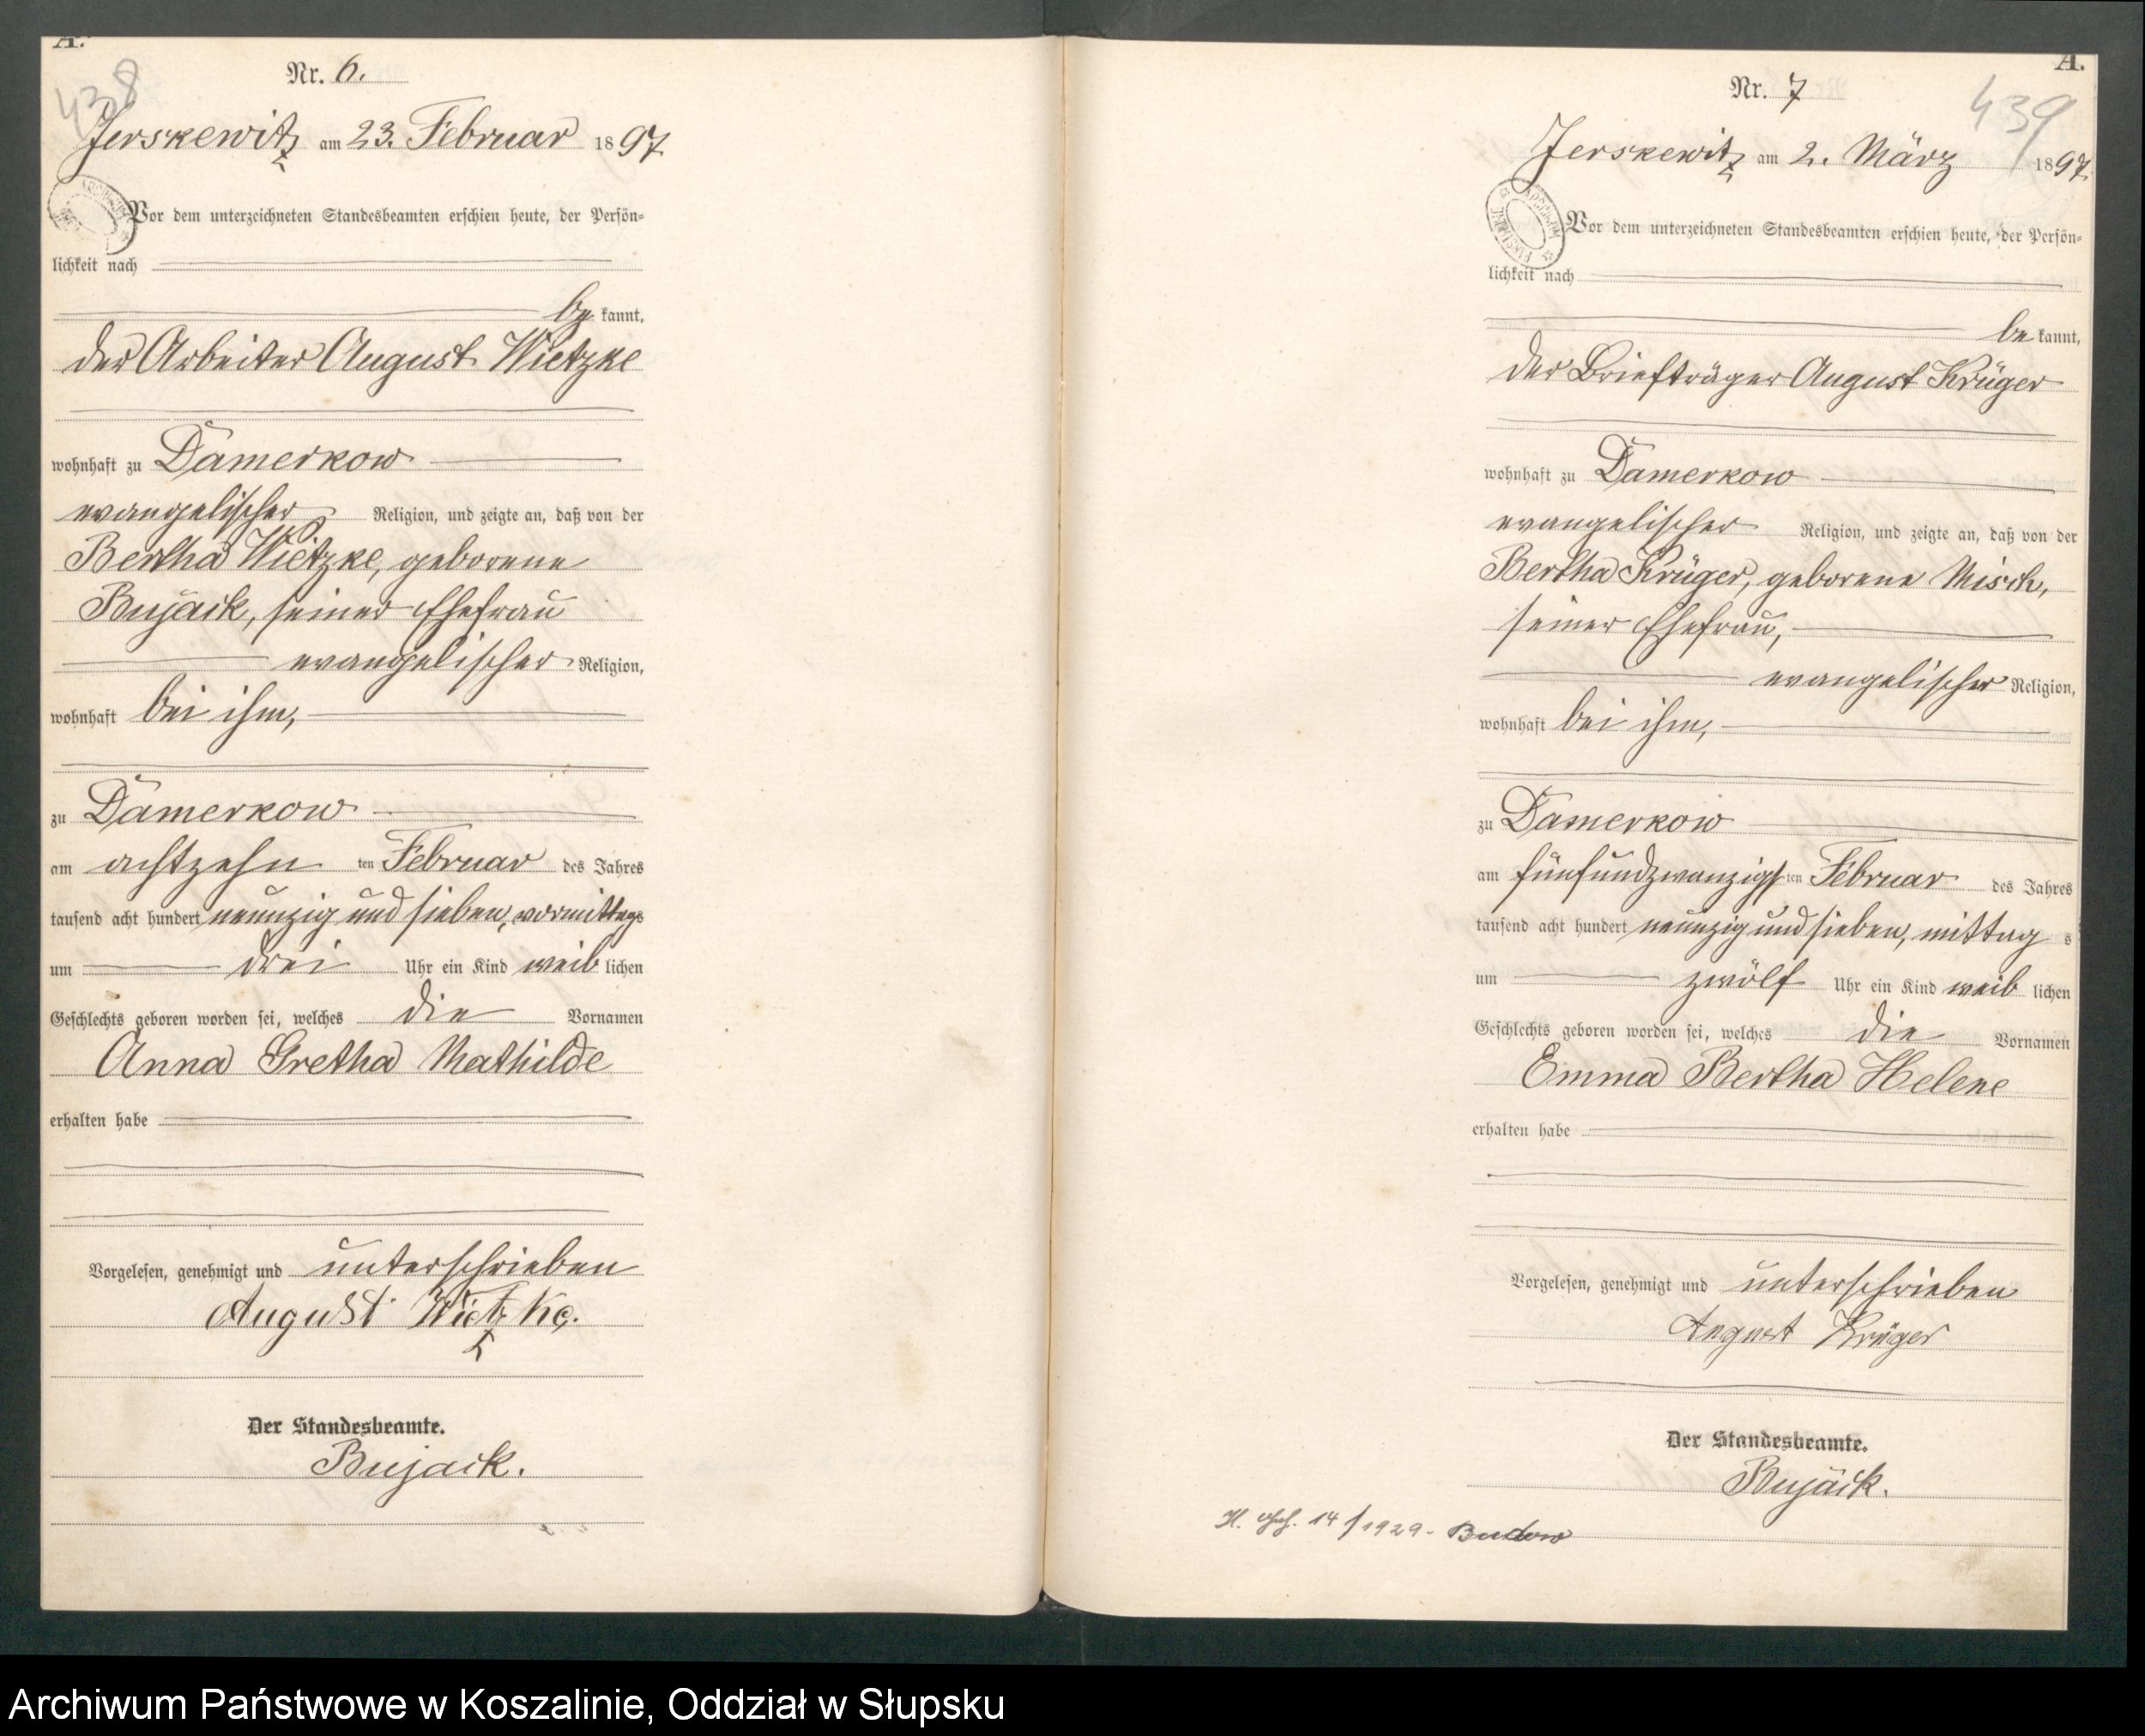 A.
438
Nr. 6.
Jerskewitz am 23. Februar 1897
Vor dem unterzeichneten Standesbeamten erschien heute, der Persön=
lichkeit nach
be kannt,
der Arbeiter August Wietzke
wohnhaft zu Damerkow
evangelischer Religion, und zeigte an, daß von der
Bertha Wietzke, geborene
Bujack, seiner Ehefrau
evangelischer Religion,
wohnhaft bei ihm,
zu Damerkow
am achtzehn ten Februar des Jahres
tausend acht hundert neunzig und sieben, vormittags
um drei Uhr ein Kind weib lichen
Geschlechts geboren worden sei, welches die Vornamen
Anna Gretha Mathilde
erhalten habe
Vorgelesen, genehmigt und unterschrieben
August Wietzke.
Der Standesbeamte.
Bujack.
A.
439
Nr. 7
Jerskewitz am 2. März 1897
Vor dem unterzeichneten Standesbeamten erschien heute, der Persön=
lichkeit nach
be kannt,
der Briefträger August Krüger
wohnhaft zu Damerkow
evangelischer Religion, und zeigte an, daß von der
Bertha Krüger, geborene Misch,
seiner Ehefrau,
evangelischer Religion,
wohnhaft bei ihm,
zu Damerkow
am fünfundzwanzigsten Februar des Jahres
tausend acht hundert neunzig und sieben, mittag s
um zwölf Uhr ein Kind weib lichen
Geschlechts geboren worden sei, welches die Vornamen
Emma Bertha Helene
erhalten habe
Vorgelesen, genehmigt und unterschrieben
August Krüger
Der Standesbeamte.
Bujack.
14/1929 - Budow
Archiwum Państwowe w Koszalinie, Oddział w Słupsku